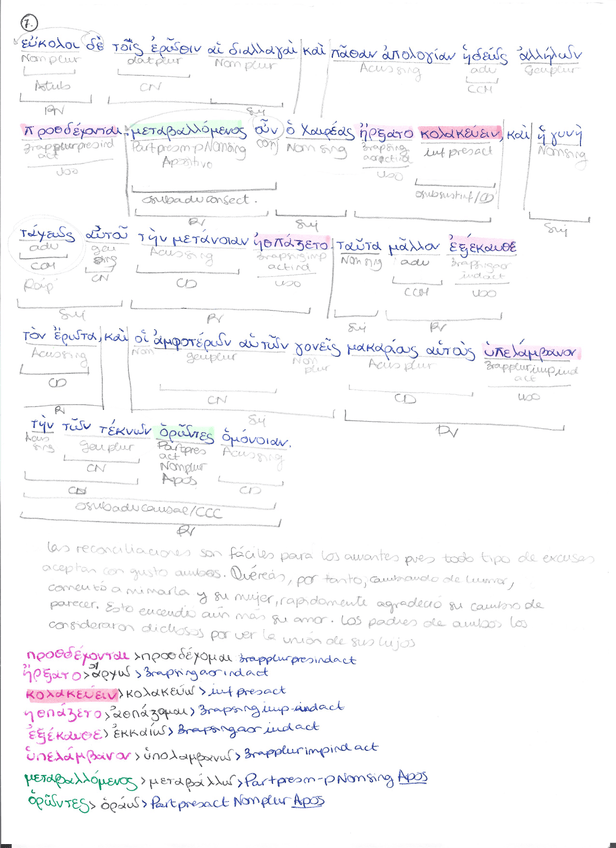 7.
εὔκολοι δὲ τοῖς ἐρῶσιν αἱ διαλλαγαὶ καὶ πᾶσαν ἀπολογίαν ἡδέως ἀλλήλων
Nom plur dat plur Nom plur Ac sing adv Gen plur
Atrib CN CCM
PV Suj
προσδέχονται· μεταβαλλόμενος οὖν ὁ Χαιρέας ἤρξατο κολακεύειν, καὶ ἡ γυνὴ
3rap plur pres ind act Part pres m-p Nom sing conj Nom sing inf pres act Nom sing
Apositivo
uso
PV Suj Suj
ταχέως αὐτοῦ τὴν μετάνοιαν ἠσπάζετο· ταῦτα μᾶλλον ἐξέκαυσε
adv gen sing Ac sing 3rap sing imp act ind Nom sing adv
CCM CN CD uso CCM uso
Suj PV Suj PV
τὸν ἔρωτα, καὶ οἱ ἀμφοτέρων αὐτῶν γονεῖς μακαρίους αὐτοὺς ὑπελάμβανον
Ac sing Nom gen plur Nom plur Ac plur 3rap plur imp ind act
CD CN CD uso
PV Suj PV
τὴν τῶν τέκνων ὁρῶντες ὁμόνοιαν.
Ac sing gen plur Part pres act Nom plur Apos Ac sing
CN CD
osubadv causal/CCC
PV
Las reconciliaciones son fáciles para los amantes pues todo tipo de excusas
aceptan con gusto ambos. Quéreas, por tanto, cambiando de humor,
comenzó a mimarla y su mujer, rapidamente agradeció su cambio de
parecer. Esto encendió aún más su amor. Los padres de ambos los
consideraron dichosos por ver la unión de sus hijos
προσδέχονται > προσδέχομαι 3rap plur pres ind act
ἤρξατο > ἄρχω > 3rap sing aor ind act
κολακεύειν > κολακεύω > inf pres act
ἠσπάζετο > ἀσπάζομαι > 3rap sing imp ind act
ἐξέκαυσε > ἐκκαίω > 3rap sing aor ind act
ὑπελάμβανον > ὑπολαμβάνω > 3rap plur imp ind act
μεταβαλλόμενος > μεταβάλλω > Part pres m-p Nom sing Apos
ὁρῶντες > ὁράω > Part pres act Nom plur Apos